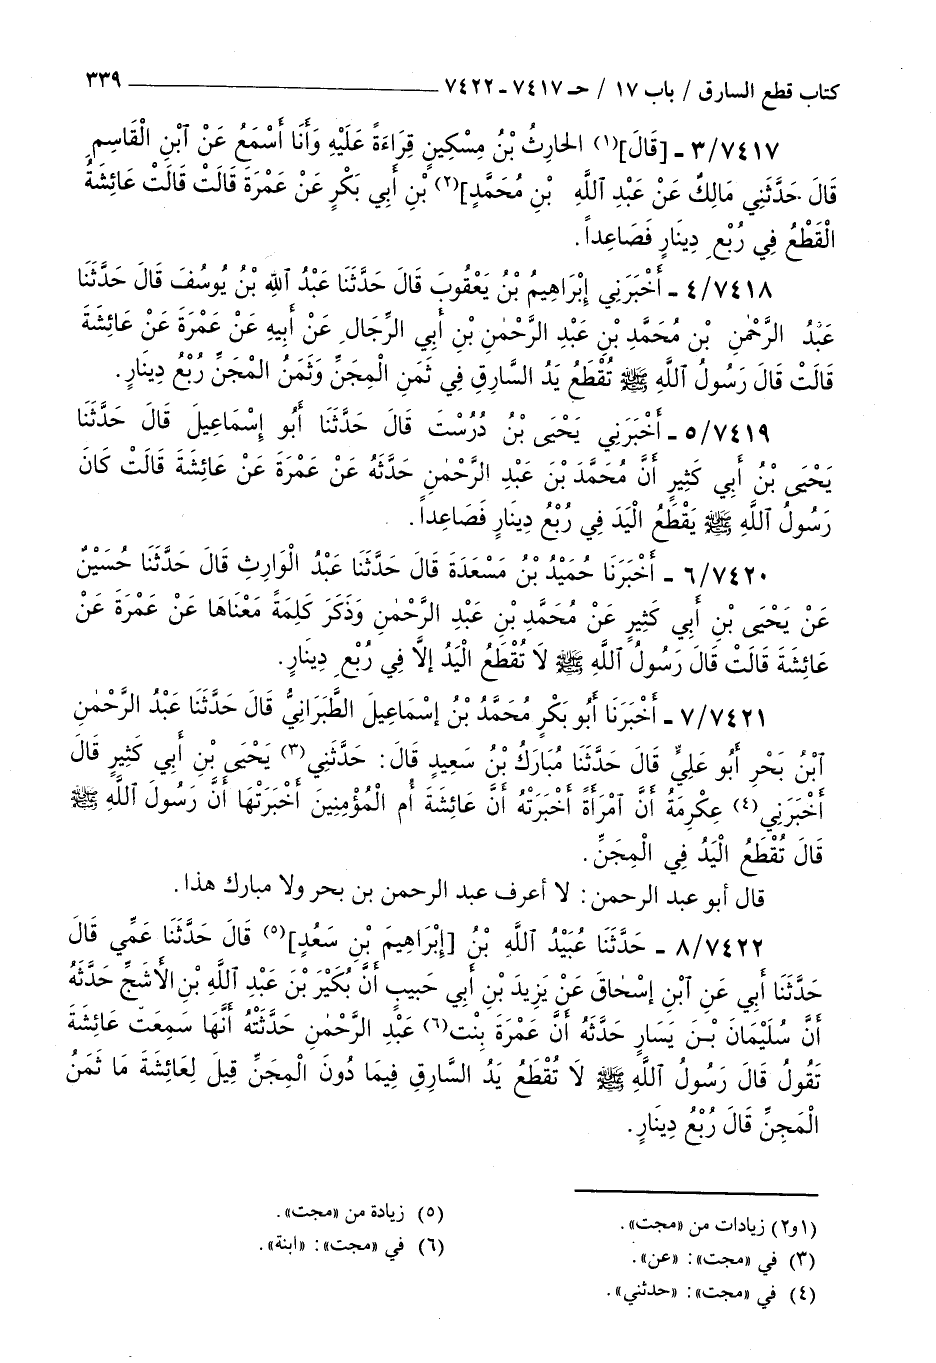 كتاب قطع السارق / باب ١٧ / حـ ٧٤١٧ - ٧٤٢٢ ٣٣٩
٣/٧٤١٧ - [قَالَ](١) الحَارِثُ بْنُ مِسْكِينٍ قِرَاءَةً عَلَيْهِ وَأَنَا أَسْمَعُ عَنْ ٱبْنِ الْقَاسِمِ
قَالَ حَدَّثَنِي مَالِكٌ عَنْ عَبْدِ ٱللَّهِ بْنِ مُحَمَّدٍ](٢) بْنِ أَبِي بَكْرٍ عَنْ عَمْرَةَ قَالَتْ قَالَتْ عَائِشَةُ
الْقَطْعُ فِي رُبْعِ دِينَارٍ فَصَاعِداً.
٤/٧٤١٨ - أَخْبَرَنِي إِبْرَاهِيمُ بْنُ يَعْقُوبَ قَالَ حَدَّثَنَا عَبْدُ ٱللَّهِ بْنُ يُوسُفَ قَالَ حَدَّثَنَا
عَبْدُ الرَّحْمٰنِ بْنِ مُحَمَّدِ بْنِ عَبْدِ الرَّحْمٰنِ بْنِ أَبِي الرِّجَالِ عَنْ أَبِيهِ عَنْ عَمْرَةَ عَنْ عَائِشَةَ
قَالَتْ قَالَ رَسُولُ ٱللَّهِ ﷺ تُقْطَعُ يَدُ السَّارِقِ فِي ثَمَنِ الْمِجَنِّ وَثَمَنُ المْجَنِّ رُبْعُ دِينَارٍ.
٥/٧٤١٩ - أَخْبَرَنِي يَحْيَى بْنُ دُرُسْتَ قَالَ حَدَّثَنَا أَبُو إِسْمَاعِيلَ قَالَ حَدَّثَنَا
يَحْيَى بْنُ أَبِي كَثِيرٍ أَنَّ مُحَمَّدَ بْنَ عَبْدِ الرَّحْمٰنِ حَدَّثَهُ عَنْ عَمْرَةَ عَنْ عَائِشَةَ قَالَتْ كَانَ
رَسُولُ ٱللَّهِ ﷺ يَقْطَعُ الْيَدَ فِي رُبْعُ دِينَارٍ فَصَاعِداً.
٦/٧٤٢٠ - أَخْبَرَنَا حُمَيْدُ بْنُ مَسْعَدَةَ قَالَ حَدَّثَنَا عَبْدُ الْوَارِثِ قَالَ حَدَّثَنَا حُسَيْنٌ
عَنْ يَحْيَى بْنِ أَبِي كَثِيرٍ عَنْ مُحَمَّدِ بْنِ عَبْدِ الرَّحْمٰنِ وَذَكَرَ كَلِمَةً مَعْنَاهَا عَنْ عَمْرَةَ عَنْ
عَائِشَةَ قَالَتْ قَالَ رَسُولُ ٱللَّهِ ﷺ لَا تُقْطَعُ الْيَدُ إِلَّا فِي رُبْعِ دِينَارٍ.
٧/٧٤٢١ - أَخْبَرَنَا أَبُو بَكْرٍ مُحَمَّدُ بْنُ إِسْمَاعِيلَ الطَّبَرَانِيُّ قَالَ حَدَّثَنَا عَبْدُ الرَّحْمٰنِ
ٱبْنُ بَحْرٍ أَبُو عَلِيٍّ قَالَ حَدَّثَنَا مُبَارَكُ بْنُ سَعِيدٍ قَالَ: حَدَّثَنِي(٣) يَحْيَى بْنِ أَبِي كَثِيرٍ قَالَ
أَخْبَرَنِي(٤) عِكْرِمَةُ أَنَّ ٱمْرَأَةً أَخْبَرَتْهُ أَنَّ عَائِشَةَ أُم الْمُؤْمِنِينَ أَخْبَرَتْهَا أَنَّ رَسُولَ ٱللَّهِ ﷺ
قَالَ تُقْطَعُ الْيَدُ فِي الْمِجَنِّ.
قال أبو عبد الرحمن: لا أعرف عبد الرحمن بن بحر ولا مبارك هذا.
٨/٧٤٢٢ - حَدَّثَنَا عُبَيْدُ ٱللَّهِ بْنُ [إِبْرَاهِيمَ بْنِ سَعُدٍ](٥) قَالَ حَدَّثَنَا عَمِّي قَالَ
حَدَّثَنَا أَبِي عَنِ ٱبْنِ إِسْحٰاقَ عَنْ يَزِيدَ بْنِ أَبِي حَبِيبٍ أَنَّ بُكَيْرَ بْنَ عَبْدِ ٱللَّهِ بْنِ الأَشَجِّ حَدَّثَهُ
أَنَّ سُلَيْمَانَ بْنَ يَسَارٍ حَدَّثَهُ أَنَّ عَمْرَةَ بِنْت(٦) عَبْدِ الرَّحْمٰنِ حَدَّثَتْهُ أَنَّهَا سَمِعَتْ عَائِشَةَ
تَقُولُ قَالَ رَسُولُ ٱللَّهِ ﷺ لَا تُقْطَعُ يَدُ السَّارِقِ فِيمَا دُونَ الْمِجَنِّ قِيلَ لِعَائِشَةَ مَا ثَمَنُ
الْمَجِنِّ قَالَ رُبْعُ دِينَارٍ.
(١و٢) زيادات من «مجت».
(٣) في «مجت»: «عن».
(٤) في «مجت»: «حدثني».
(٥) زيادة من «مجت».
(٦) في «مجت»: «ابنة».